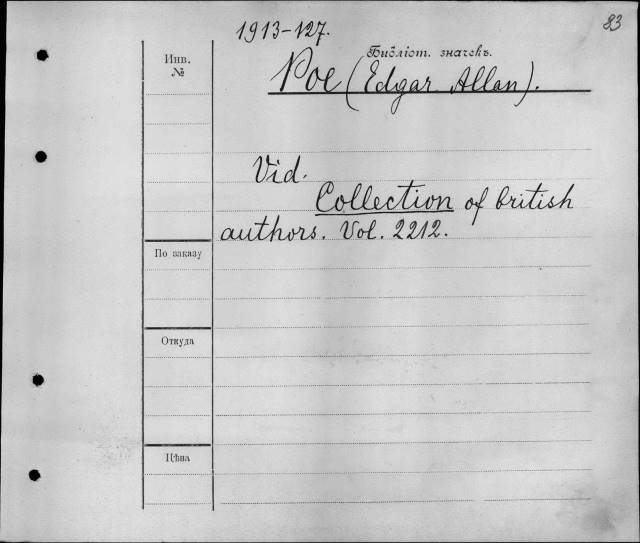 83
1913-127.
Библіот. значекъ.
Инв.
№
Poe (Edgar Allan).
Vid.
Collection of british
authors. Vol. 2212.
По заказу
Откуда
Цѣна